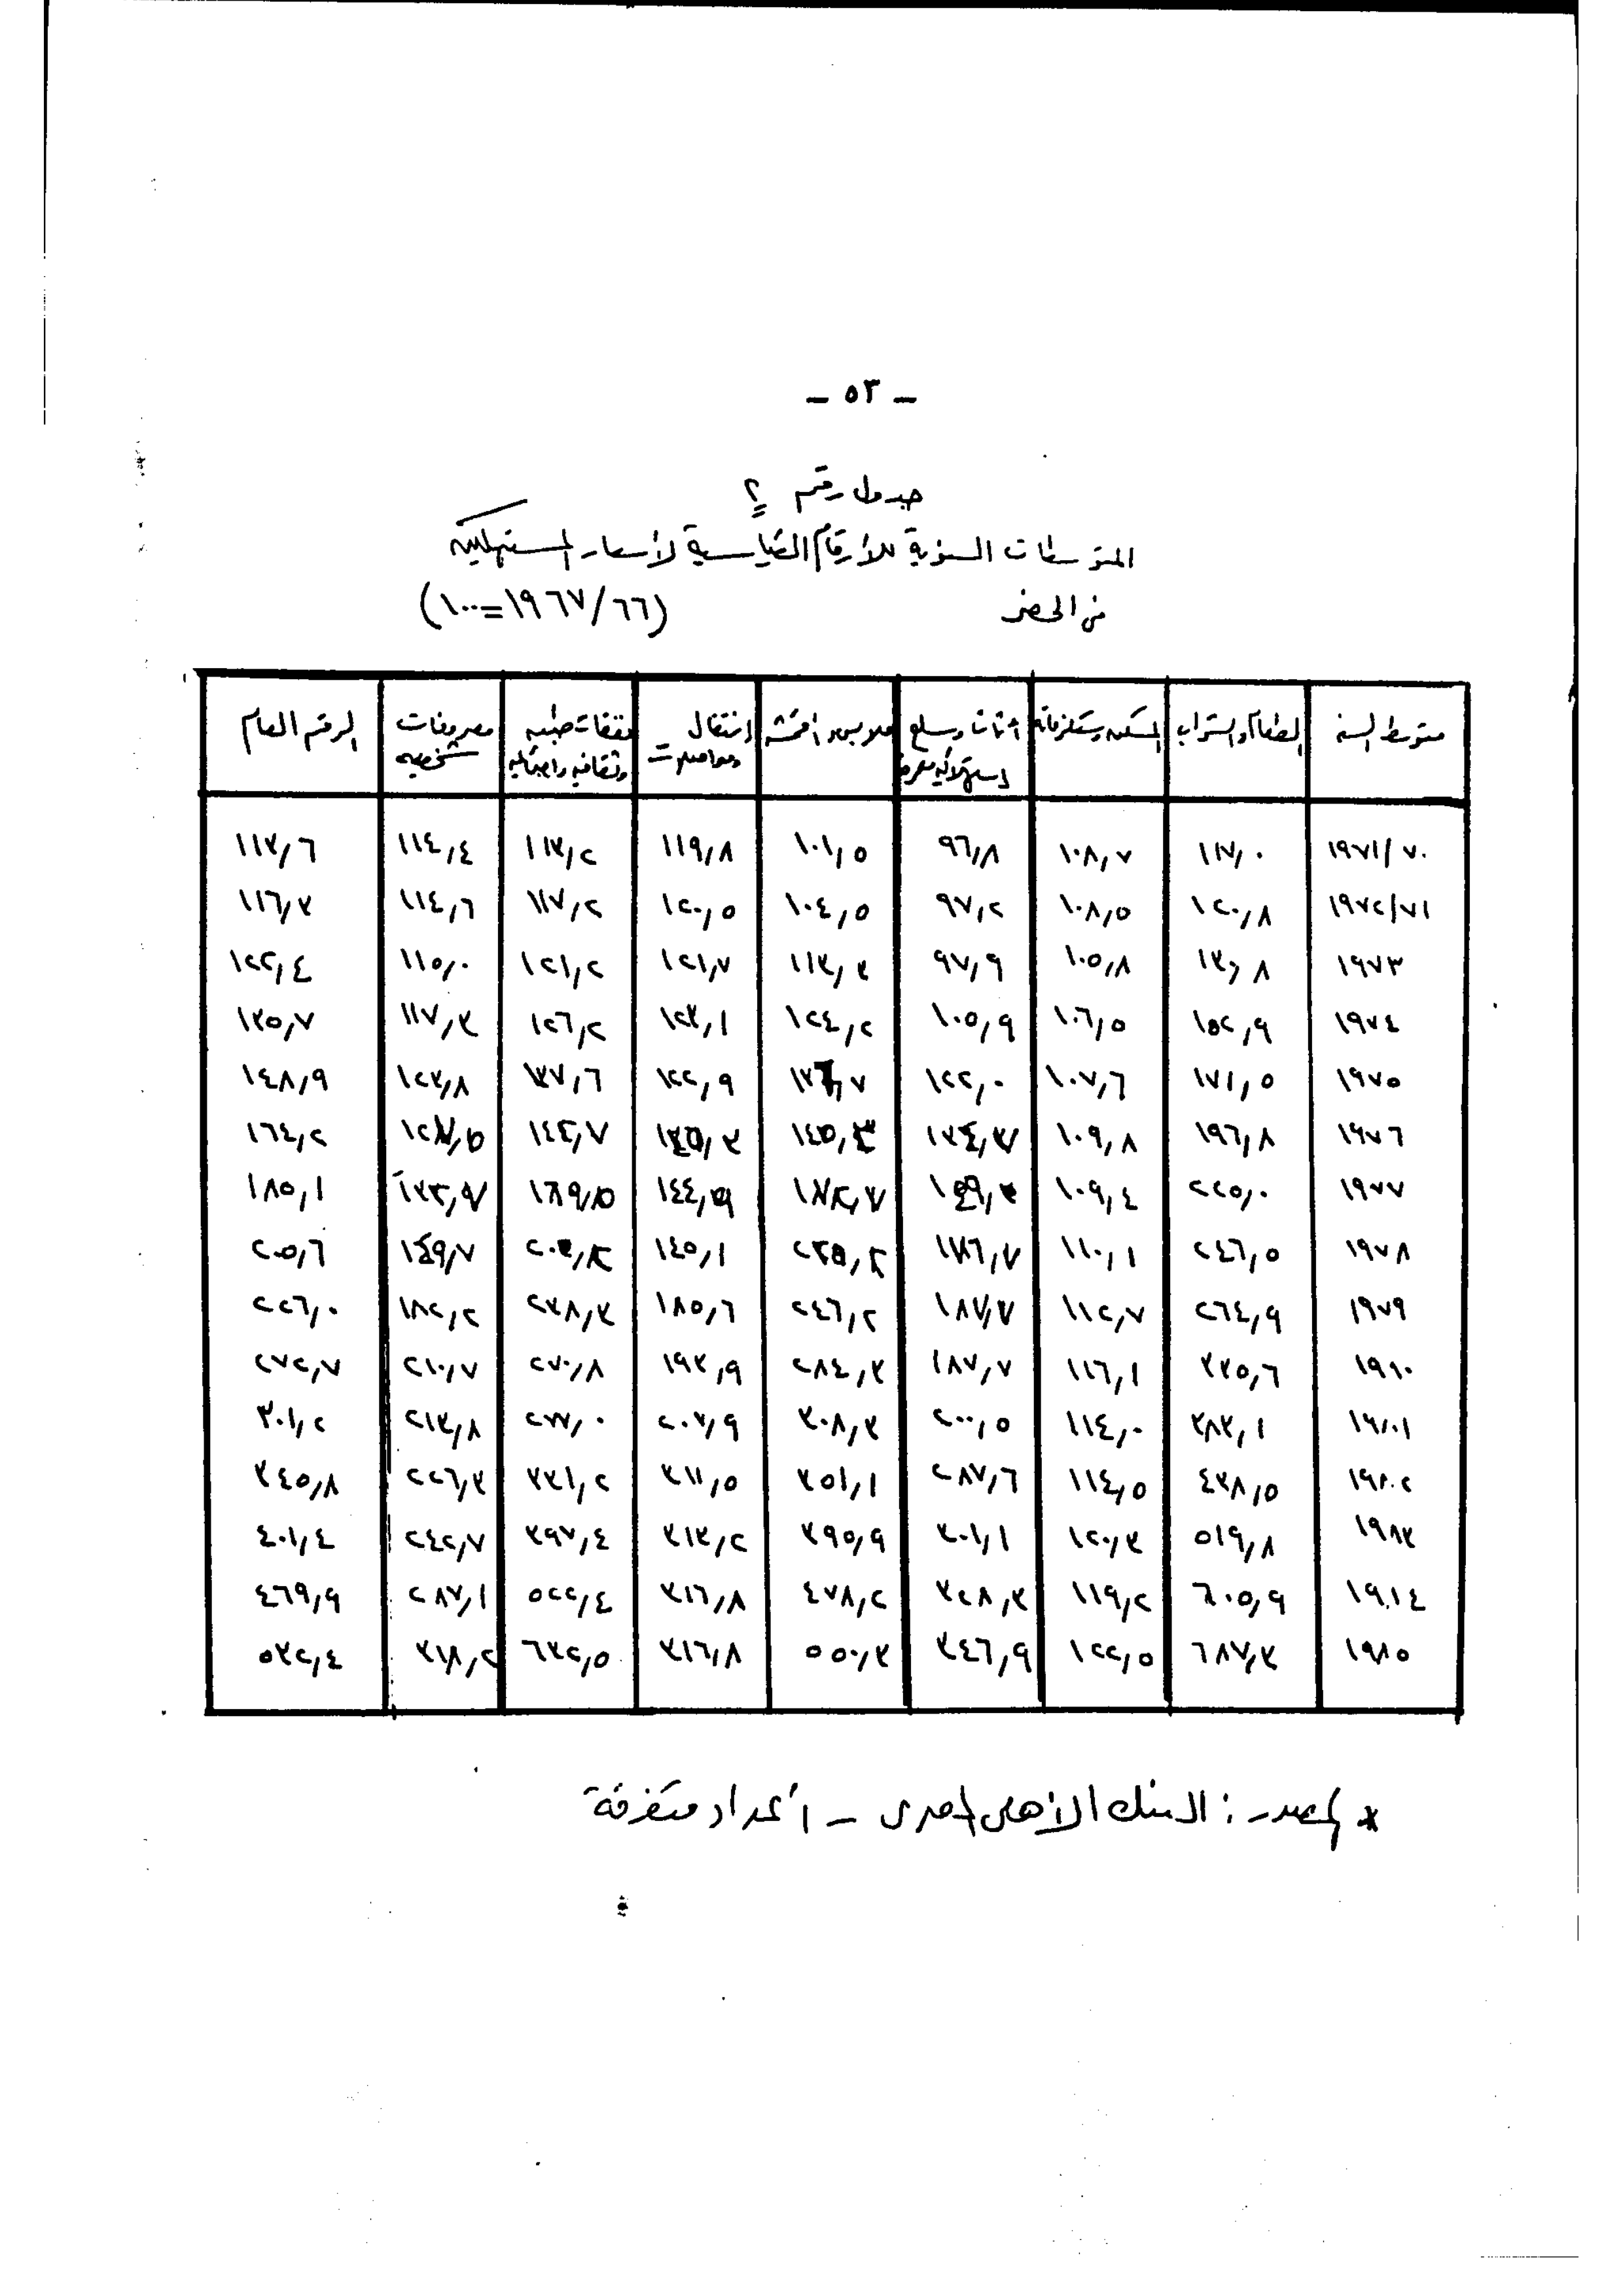 – ٥٣ –
جدول رقم ٢
المتوسطات السنوية للأرقام القياسية لأسعار المستهلكين
في الحضر (٦٦/١٩٦٧=١٠٠)
متوسط السنة الطعام والشراب المسكن ومستلزماته أثاث وسلع استهلاكية معمرة ملابس وأقمشة انتقال ومواصلات نفقات طبية وثقافية مصروفات شخصية الرقم العام
١٩٧١/٧٠ ١١٧,٠ ١٠٨,٧ ٩٦,٨ ١٠١,٥ ١١٩,٨ ١١٣,٢ ١١٤,٤ ١١٣,٦
١٩٧٢/٧١ ١٢٠,٨ ١٠٨,٥ ٩٧,٢ ١٠٤,٥ ١٢٠,٥ ١١٧,٢ ١١٤,٦ ١١٦,٣
١٩٧٣ ١٠٥,٨ ٩٧,٩ ١١٣,٣ ١٢١,٧ ١٢١,٢ ١١٥,٠ ١٢٢,٤
١٩٧٤ ١٥٢,٩ ١٠٦,٥ ١٠٥,٩ ١٢٤,٢ ١٢٣,١ ١٢٦,٢ ١١٧,٣ ١٣٥,٧
١٩٧٥ ١٧١,٥ ١٠٧,٦ ١٢٢,٠ ١٣٦,٧ ١٢٢,٩ ١٣٧,٦ ١٢٣,٨ ١٤٨,٩
١٩٧٦ ١٩٦,٨ ١٠٩,٨ ١٣٤,٣ ١٤٥,٣ ١٤٢,٧ ١٦٤,٢
١٩٧٧ ٢٢٥,٠ ١٠٩,٤ ١٨٥,١
١٩٧٨ ٢٤٦,٥ ١١٠,١ ١٧٦,٧ ٢٣٥,٢ ١٤٥,١ ١٤٩,٧ ٢٠٥,٦
١٩٧٩ ٢٦٤,٩ ١١٢,٧ ١٨٧,٧ ٢٤٦,٢ ١٨٥,٦ ٢٣٨,٣ ١٨٢,٢ ٢٢٦,٠
١٩٨٠ ٣٣٥,٦ ١١٦,١ ١٨٧,٧ ٢٨٤,٣ ١٩٣,٩ ٢٧٠,٨ ٢١٠,٧ ٢٧٢,٧
١٩٨١ ٣٨٣,١ ١١٤,٠ ٢٠٠,٥ ٣٠٨,٣ ٢٠٣,٩ ٢٧٧,٠ ٢١٣,٨ ٣٠١,٢
١٩٨٢ ٤٣٨,٥ ١١٤,٥ ٢٨٧,٦ ٣٥١,١ ٣١١,٥ ٣٣١,٢ ٢٢٦,٣ ٣٤٥,٨
١٩٨٣ ٥١٩,٨ ١٢٠,٣ ٣٠١,١ ٣٩٥,٩ ٣١٣,٢ ٣٩٧,٤ ٢٤٢,٧ ٤٠١,٤
١٩٨٤ ٦٠٥,٩ ١١٩,٢ ٣٢٨,٣ ٤٧٨,٢ ٣١٦,٨ ٥٢٢,٤ ٢٨٧,١ ٤٦٩,٩
١٩٨٥ ٦٨٧,٣ ١٢٢,٥ ٣٤٦,٩ ٥٥٠,٣ ٣١٦,٨ ٦٣٢,٥ ٣١٨,٢ ٥٣٢,٤
* المصدر : البنك الأهلى المصرى – أعداد متفرقة